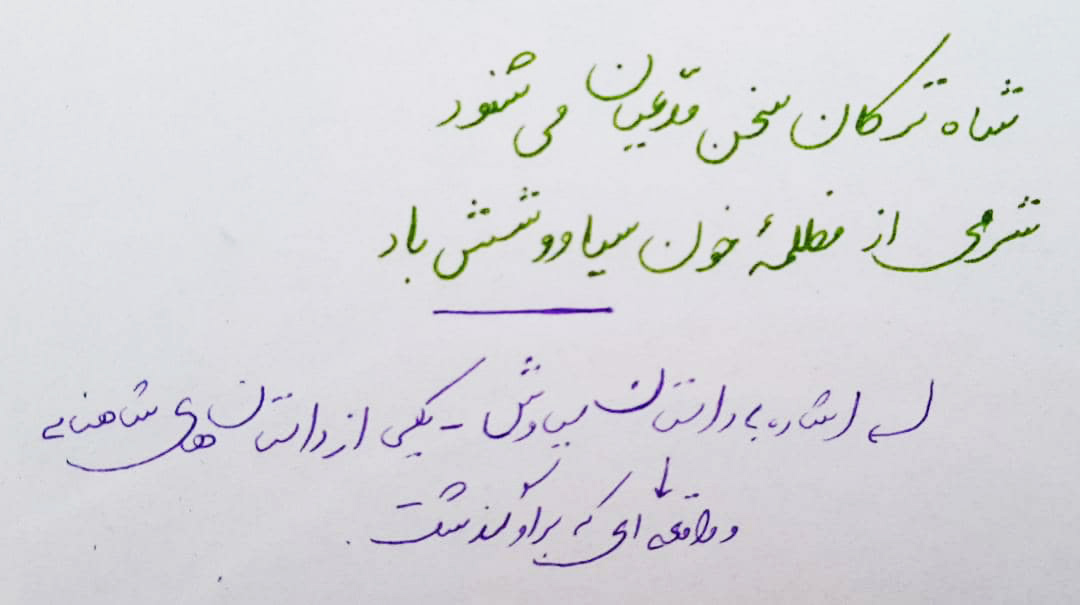 شاه ترکان سخن مدّعیان می شنود
شرمی از مظلمهٔ خون سیاووشش باد
اشاره به داستان سیاوش - یکی از داستان های شاهنامه
و واقعه ای که بر او گذشت.